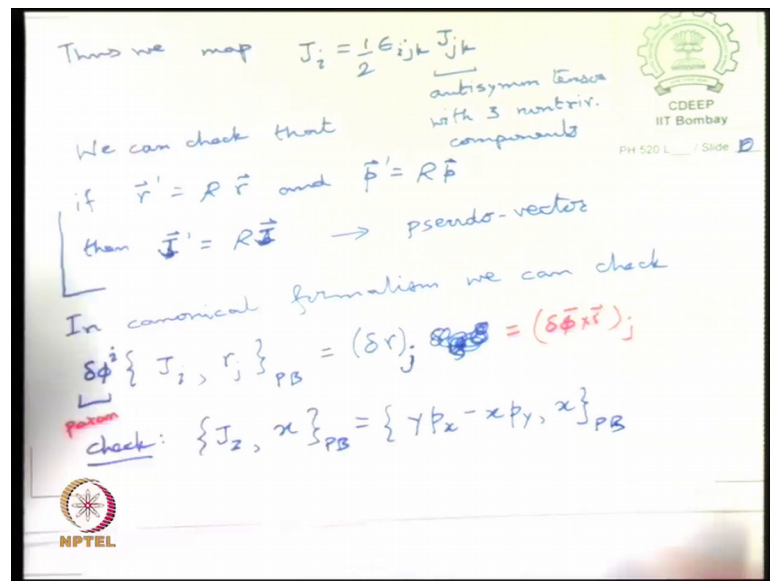 Thus we map J_i = 1/2 ϵ_ijk J_jk
antisymm tensor
with 3 nontriv.
components
CDEEP
IIT Bombay
PH 520 L___ / Slide
We can check that
if r⃗' = R r⃗ and p⃗' = R p⃗
then J⃗' = R J⃗ → pseudo-vector
In canonical formalism we can check
δϕ^i { J_i , r_j }_PB = (δr)_j = (δϕ⃗ × r⃗)_j
param
check: { J_z , x }_PB = { y p_x - x p_y , x }_PB
NPTEL